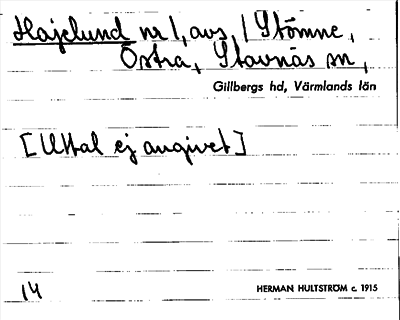 Hajelund nr 1, avs. / Stömne,
Östra, Stavnäs sn,
Gillbergs hd, Värmlands län
[Uttal ej angivet]
14
HERMAN HULTSTRÖM c. 1915